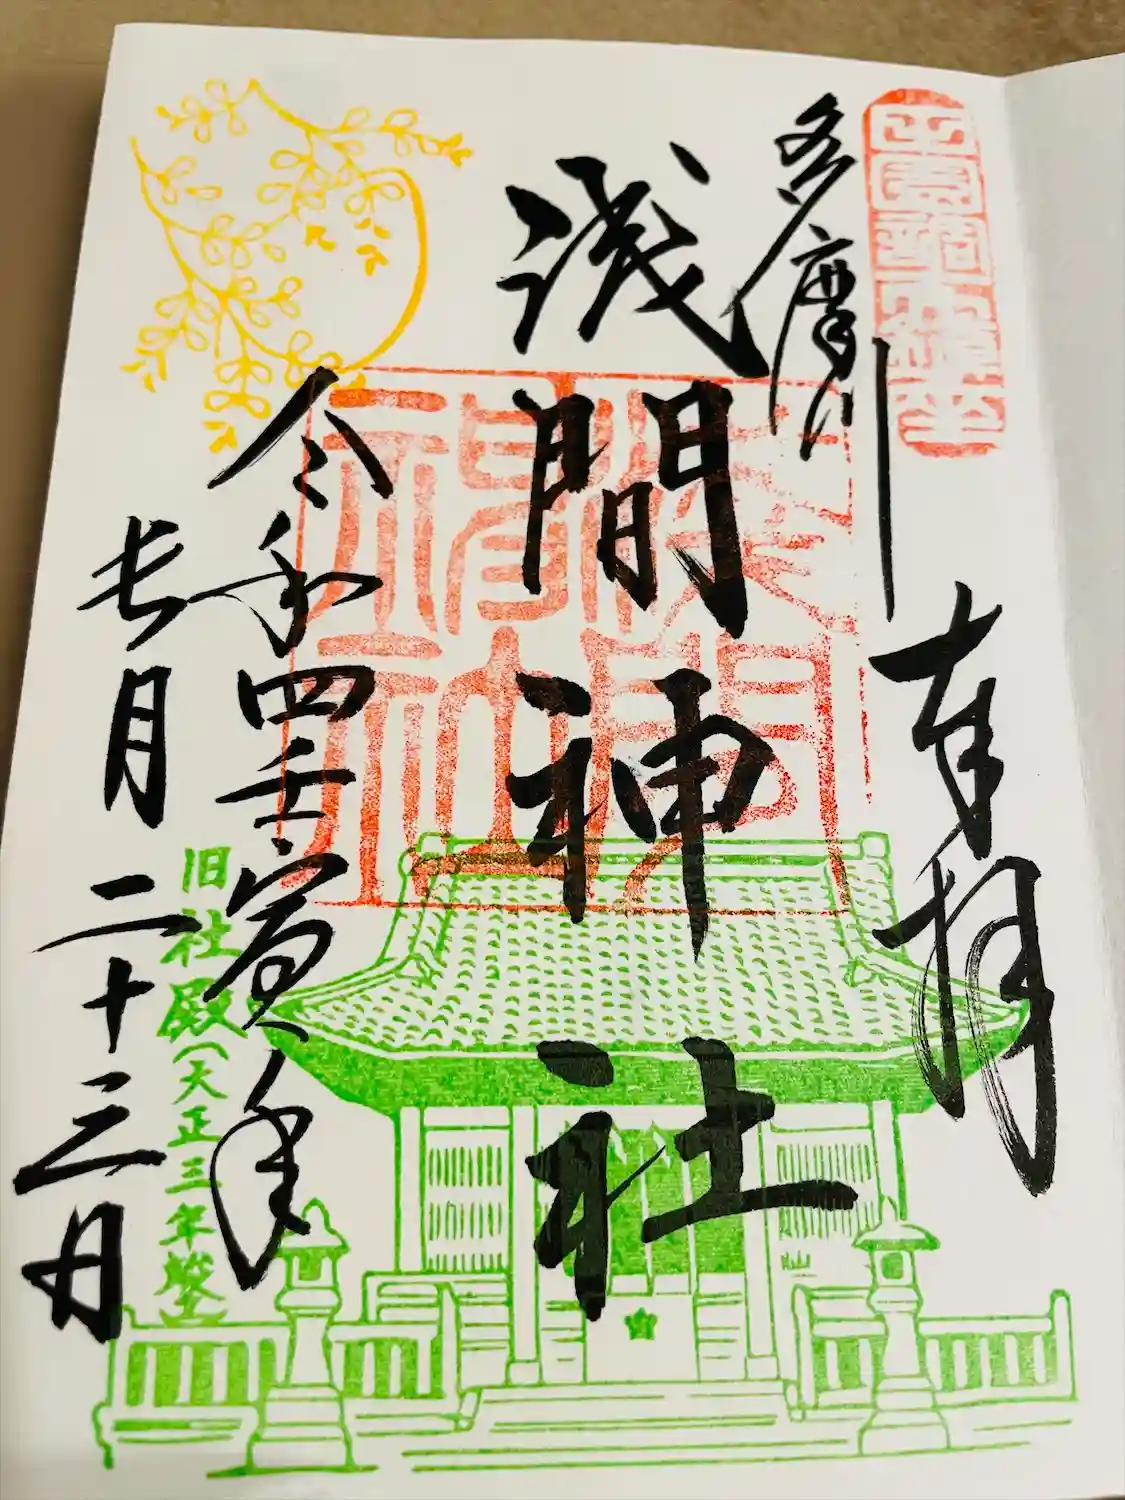 奉拝
多摩川
浅間神社
令和四壬寅年
長月二十三日
旧社殿(大正三年竣工)